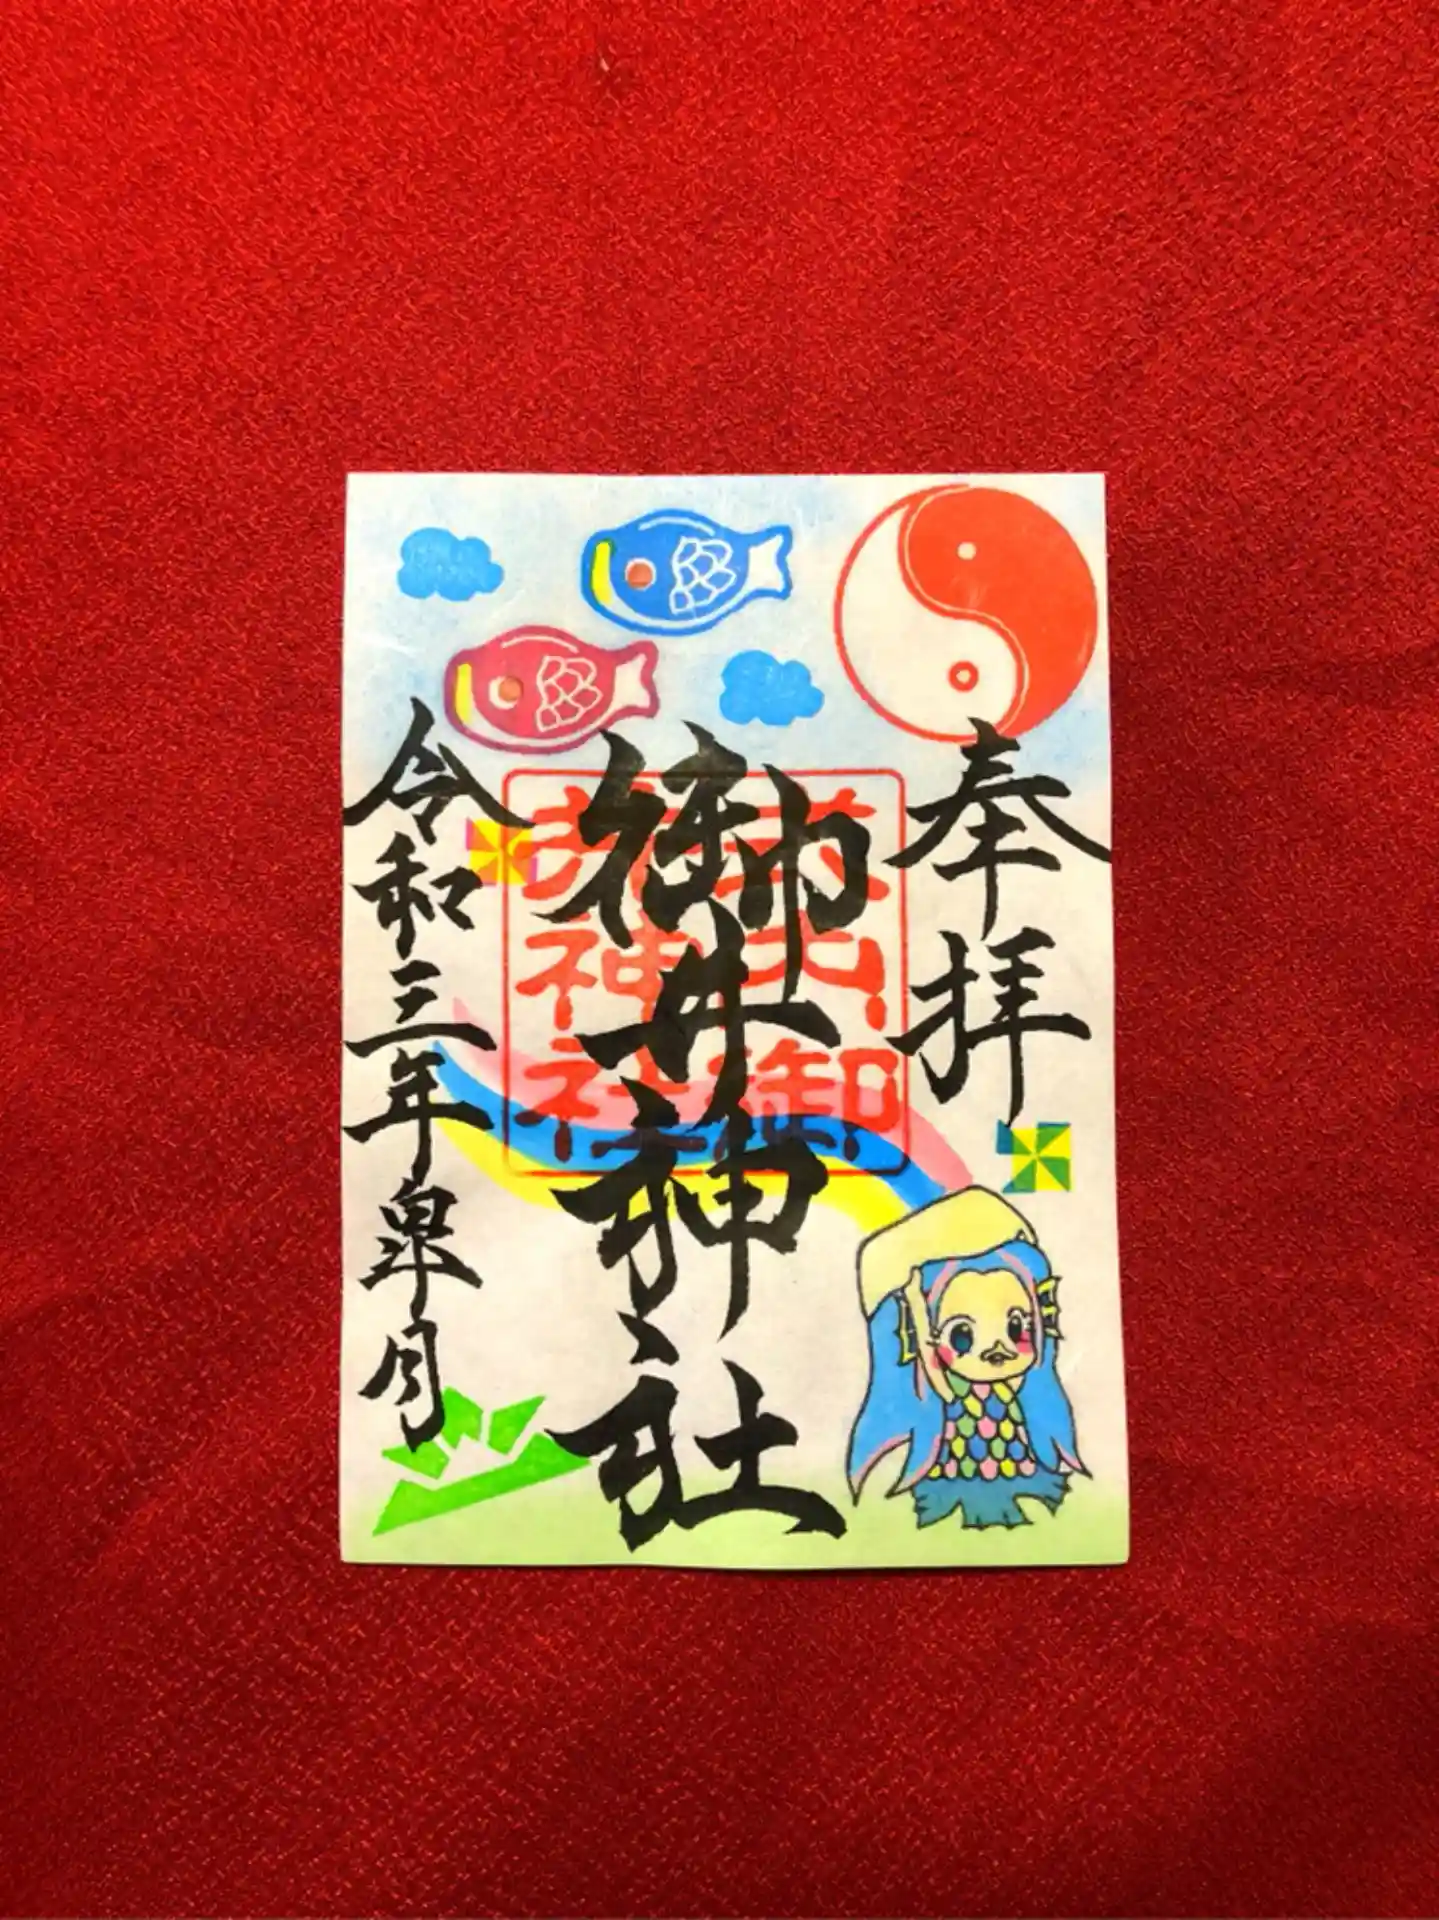 奉拝
御井神社
令和三年皐月